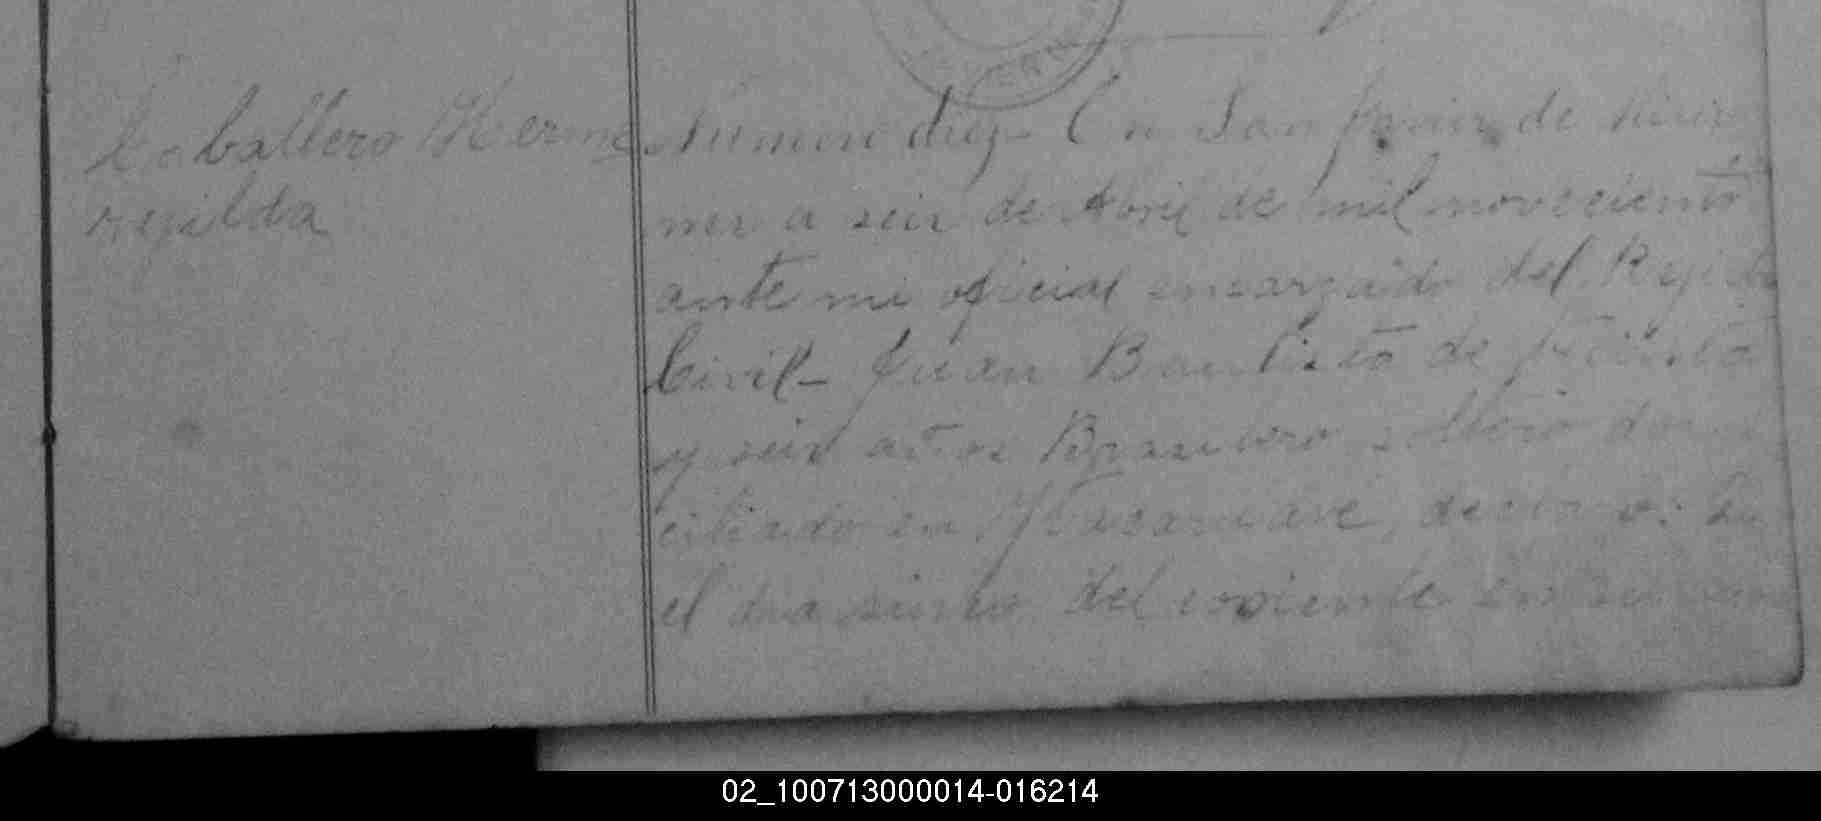 Caballero Herme
negilda
Número diez - En San Javier de Misio
nes a seis de Abril de mil novecientos
ante mi oficial encargado del Rejistro
Civil - Juan Bautista de treinta
y seis años Brasilero soltero domi
ciliado en Itacaruare, declaro: Que
el dia sinco del coriente en su
02_100713000014-016214